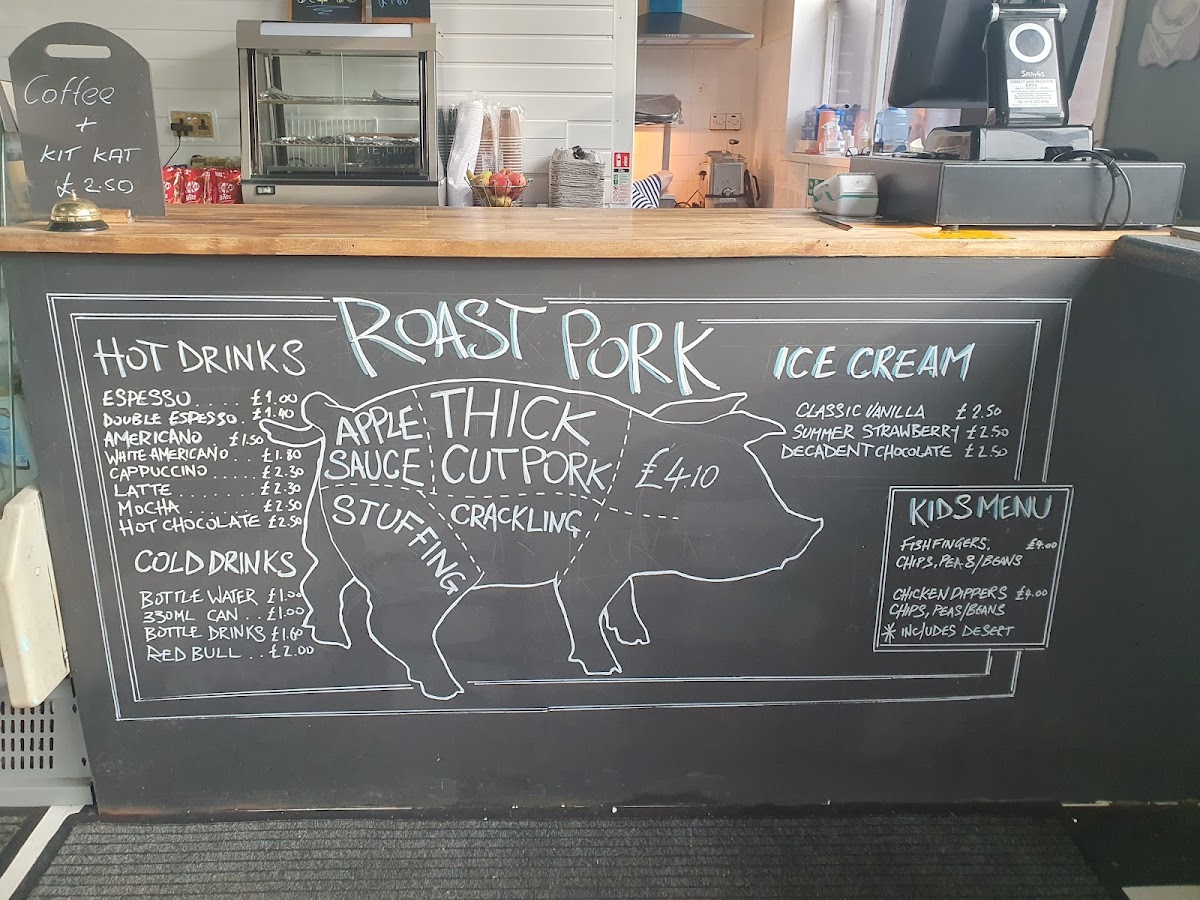 Coffee
+
KIT KAT
£2.50
ROAST PORK
HOT DRINKS
ESPESSO..... £1.00
DOUBLE ESPESSO. £1.40
AMERICANO.. £1.50
WHITE AMERICANO.. £1.80
CAPPUCCINO..... £2.30
LATTE........ £2.30
MOCHA........ £2.50
HOT CHOCOLATE £2.50
COLD DRINKS
BOTTLE WATER £1.00
330ML CAN.. £1.00
BOTTLE DRINKS £1.60
RED BULL... £2.00
APPLE
SAUCE
THICK
CUT PORK
£4.10
STUFFING
CRACKLING
ICE CREAM
CLASSIC VANILLA £2.50
SUMMER STRAWBERRY £2.50
DECADENT CHOCOLATE £2.50
KIDS MENU
FISH FINGERS. £4.00
CHIPS, PEAS/BEANS
CHICKEN DIPPERS £4.00
CHIPS, PEAS/BEANS
* INCLUDES DESERT